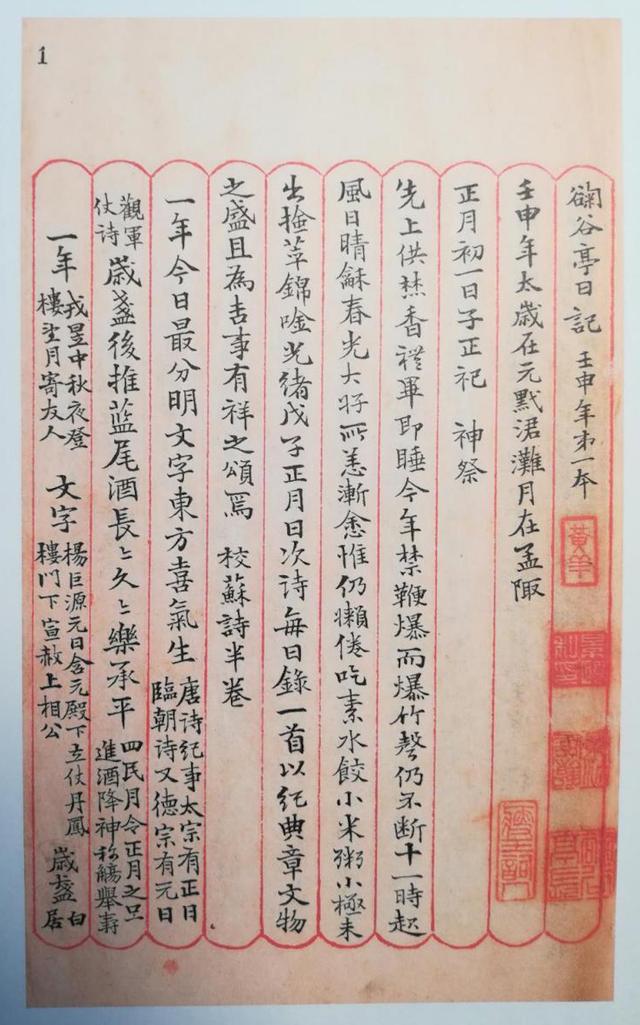 谷亭日記 壬申年苐一本
壬申年太歲在元默涒灘月在孟陬
正月初一日子正祀 神祭
先上供焚香禮畢即睡今年禁鞭爆而爆竹聲仍不斷十一時起
風日晴龢春光大好所恙漸愈惟仍懶倦吃素水餃小米粥小極未
出撿萃錦唫光緒戊子正月日次詩每日錄一首以紀典章文物
之盛且為吉事有祥之頌焉 校蘇詩半卷
一年今日最分明文字東方喜氣生 唐詩紀事太宗有正日臨朝詩又德宗有元日
觀軍仗詩 歲盞後推藍尾酒長〻久〻樂承平 四民月令正月之旦進酒降神称觴舉壽
一年 戎昱中秋夜澄樓望月寄友人 文字 楊巨源元日含元殿下立仗丹鳳樓門下宣赦上相公 歲盞 白居
1